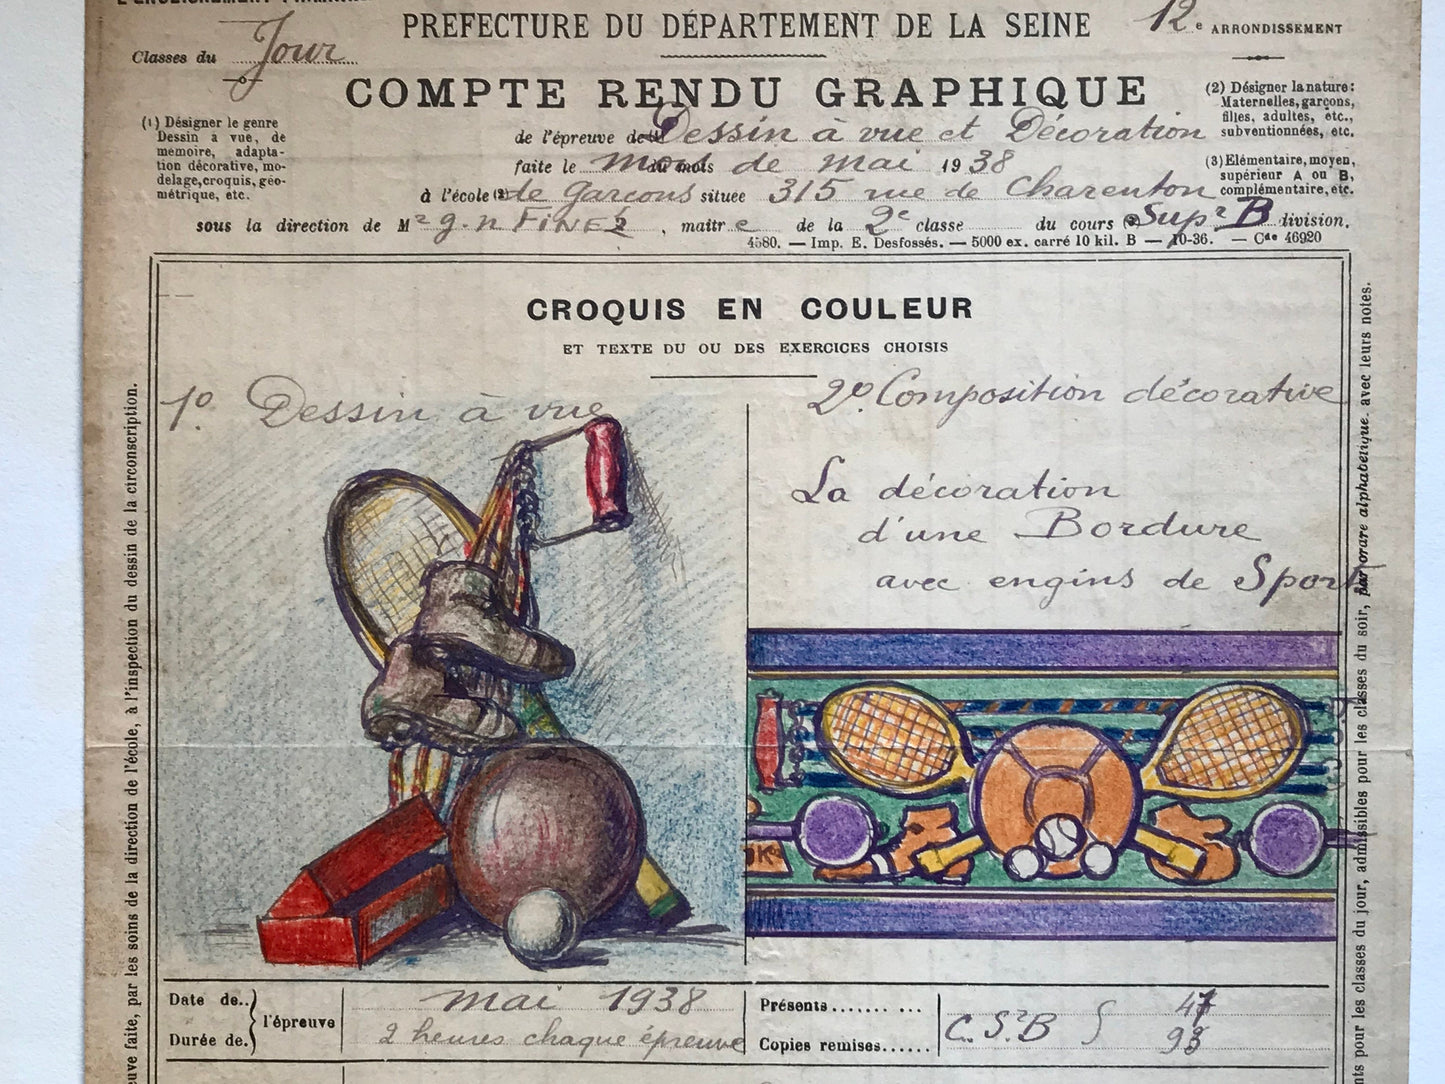 PREFECTURE DU DÉPARTEMENT DE LA SEINE
12e ARRONDISSEMENT
Classes du Jour
COMPTE RENDU GRAPHIQUE
(1) Désigner le genre
Dessin a vue, de
mémoire, adapta-
tion décorative, mo-
delage, croquis, géo-
métrique, etc.
(2) Désigner la nature:
Maternelles, garçons,
filles, adultes, etc.,
subventionnées, etc.
(3) Elémentaire, moyen,
supérieur A ou B,
complémentaire, etc.
de l'épreuve de Dessin à vue et Décoration
faite le mois de mai 1938
à l'école (2) de garçons située 315 rue de Charenton
sous la direction de Mr, maitre de la 2e classe du cours Supr B division.
4580. — Imp. E. Desfossés. — 5000 ex. carré 10 kil. B — 10-36. — Cde 46920
CROQUIS EN COULEUR
ET TEXTE DU OU DES EXERCICES CHOISIS
1º. Dessin à vue
2º. Composition décorative
La décoration
d'une Bordure
avec engins de Sport
Date de..
Durée de.
l'épreuve
mai 1938
2 heures chaque épreuve
Présents
Copies remises
C. S. B
47
épreuve faite, par les soins de la direction de l'école, à l'inspection du dessin de la circonscription.
pour les classes du jour, admissibles pour les classes du soir, par ordre alphabétique avec leurs notes.